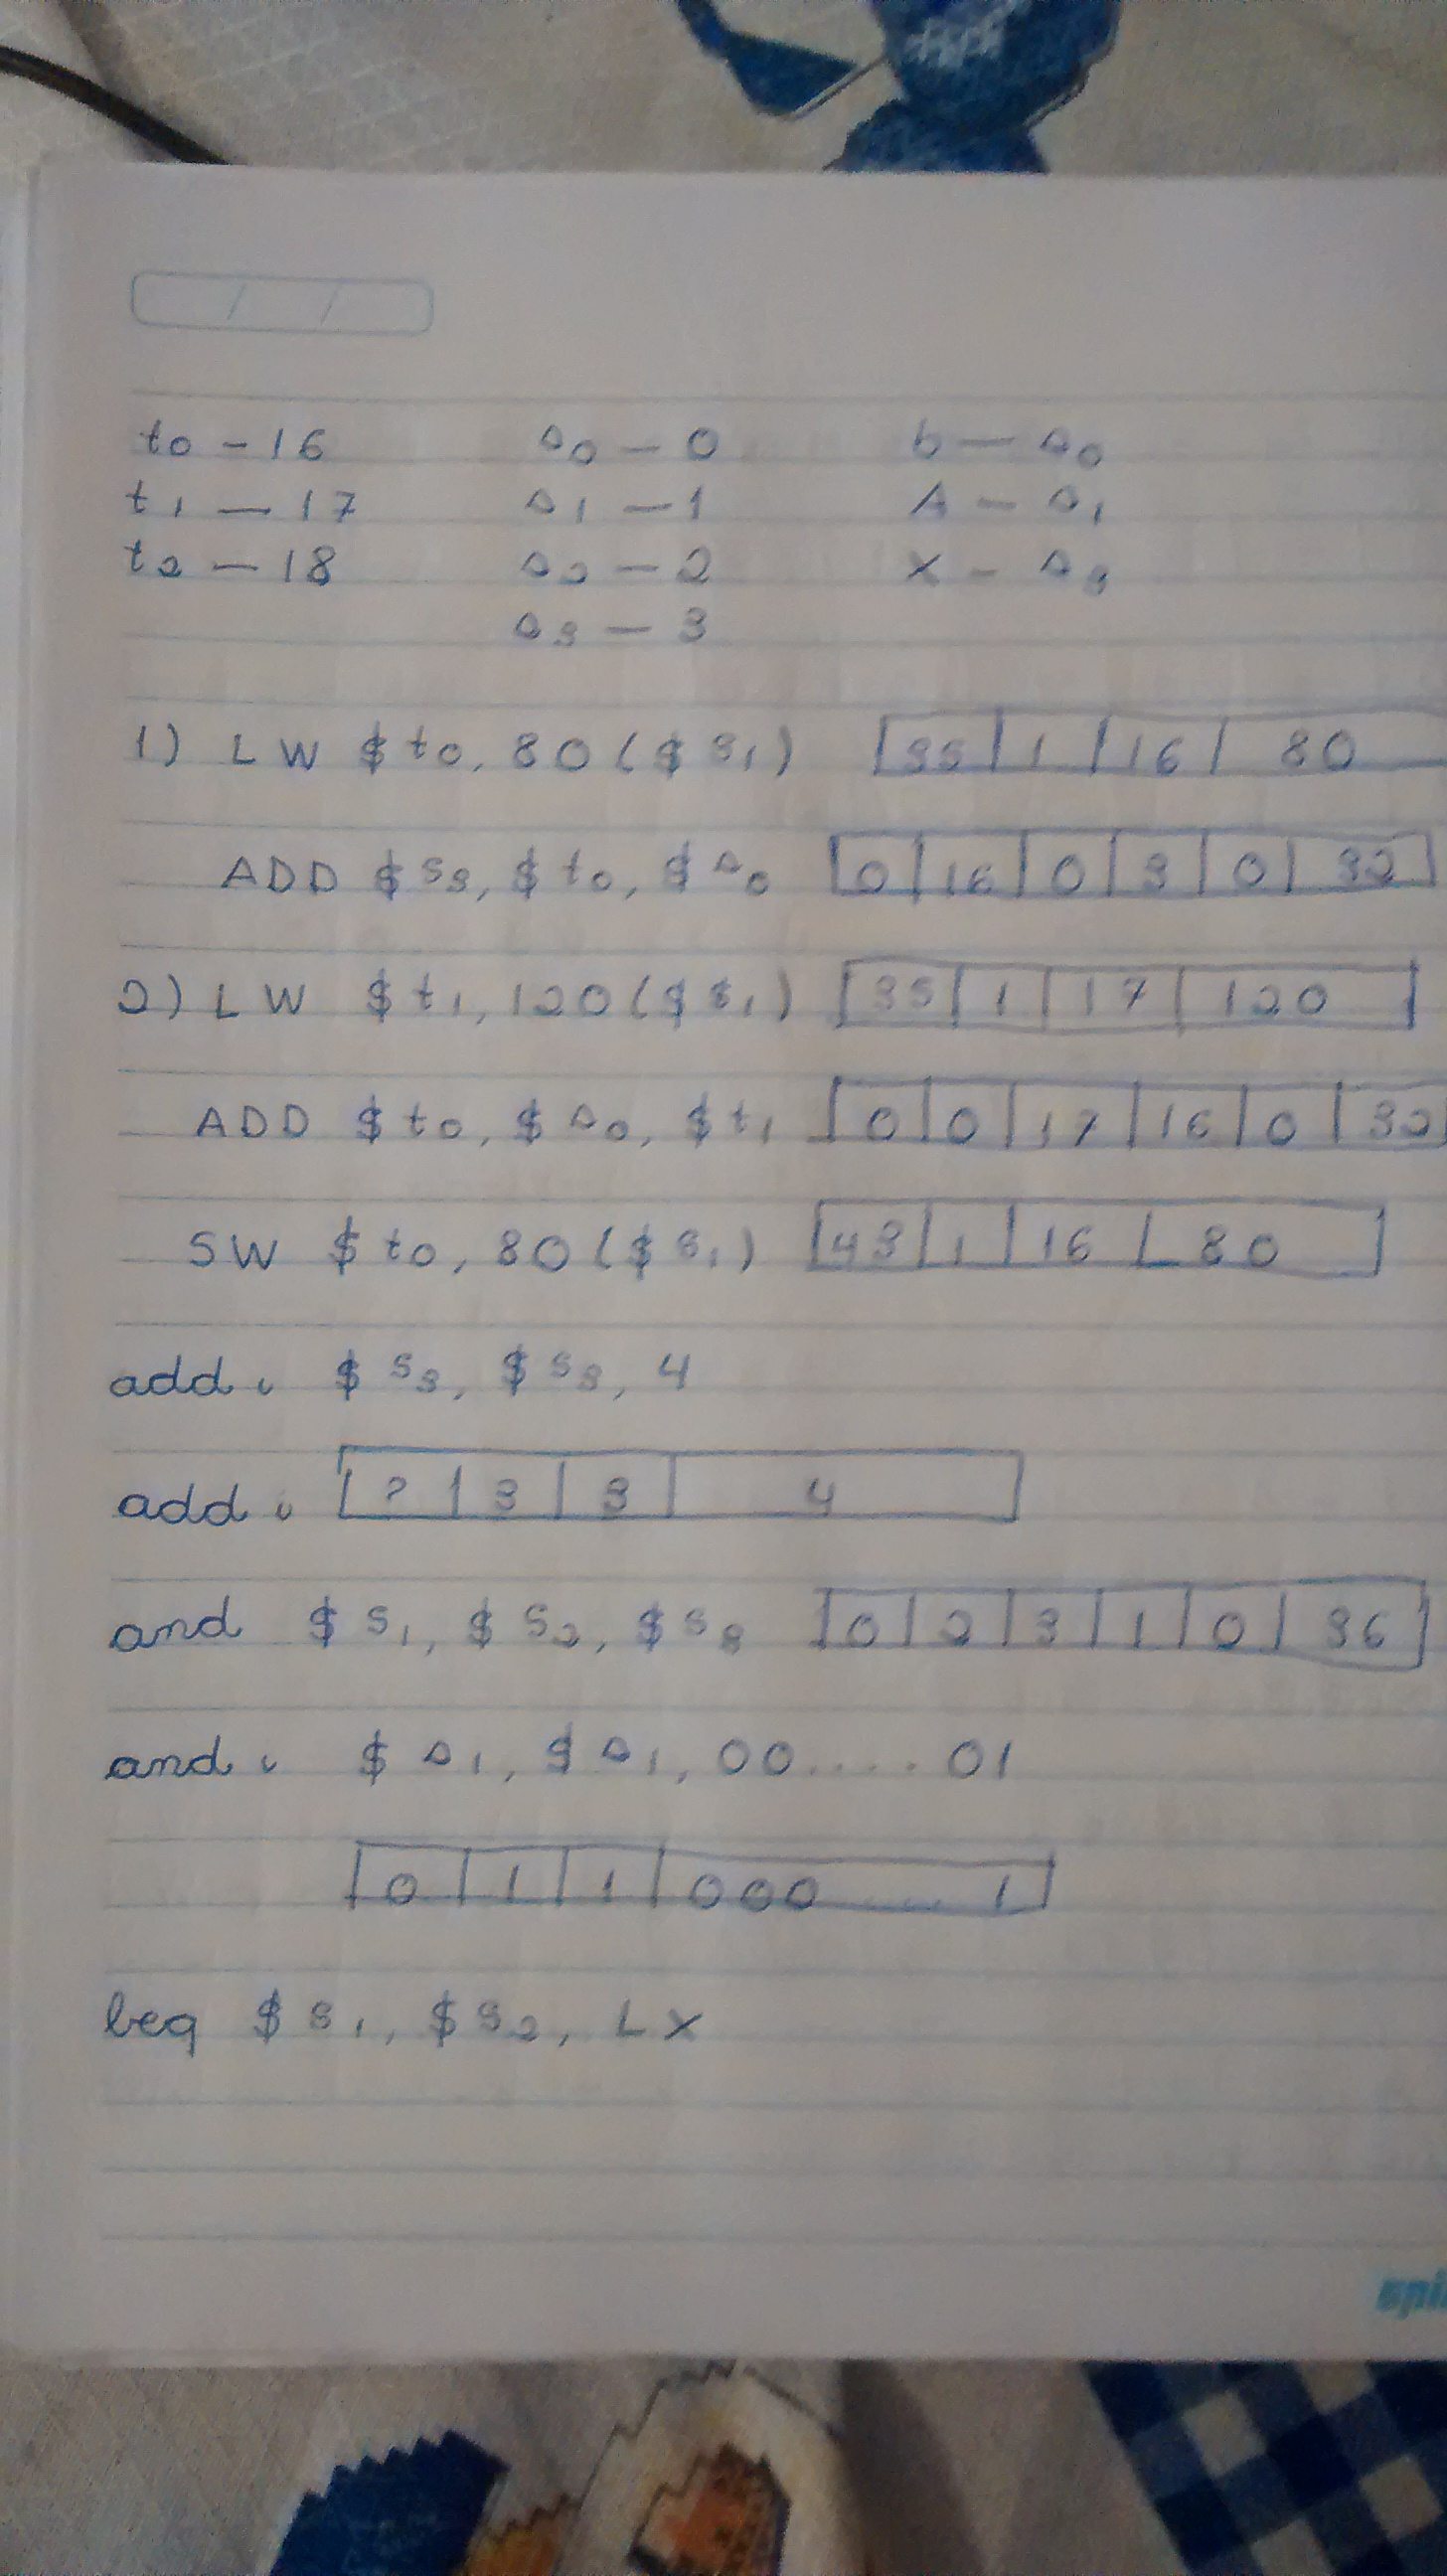 to - 16 s0 - 0 b - s0
t1 - 17 s1 - 1 A - s1
t2 - 18 s2 - 2 x - s3
s3 - 3
1) LW $t0, 80($s1) |35|1|16| 80
ADD $s3, $t0, $s0 |0|16|0|3|0|32|
2) LW $t1, 120($s1) |35|1|17|120|
ADD $t0, $s0, $t1 |0|0|17|16|0|32|
SW $t0, 80($s1) |43|1|16|80|
addi $s3, $s3, 4
addi |?|3|3|4|
and $s1, $s2, $s3 |0|2|3|1|0|36|
andi $s1, $s1, 00....01
|0|1|1|000 .... 1|
beq $s1, $s2, Lx